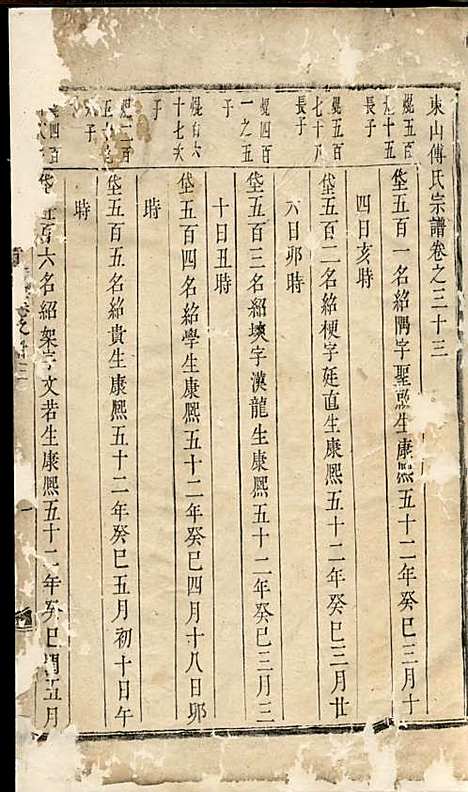 東山傅氏宗譜卷之三十三
焜五百
九十五
長子
垈五百一名紹隅字聖熙生康熙五十二年癸巳三月十
四日亥時
焜五百
七十八
長子
垈五百二名紹梗字廷直生康熙五十二年癸巳三月廿
六日卯時
焜四百
一之五
子
垈五百三名紹塽字漢龍生康熙五十二年癸巳三月三
十日丑時
焜百六
十七次
子
垈五百四名紹學生康熙五十二年癸巳四月十八日卯
時
焜二百
子
垈五百五名紹貴生康熙五十二年癸巳五月初十日午
時
四百
垈五百六名紹架字文若生康熙五十二年癸巳閏五月